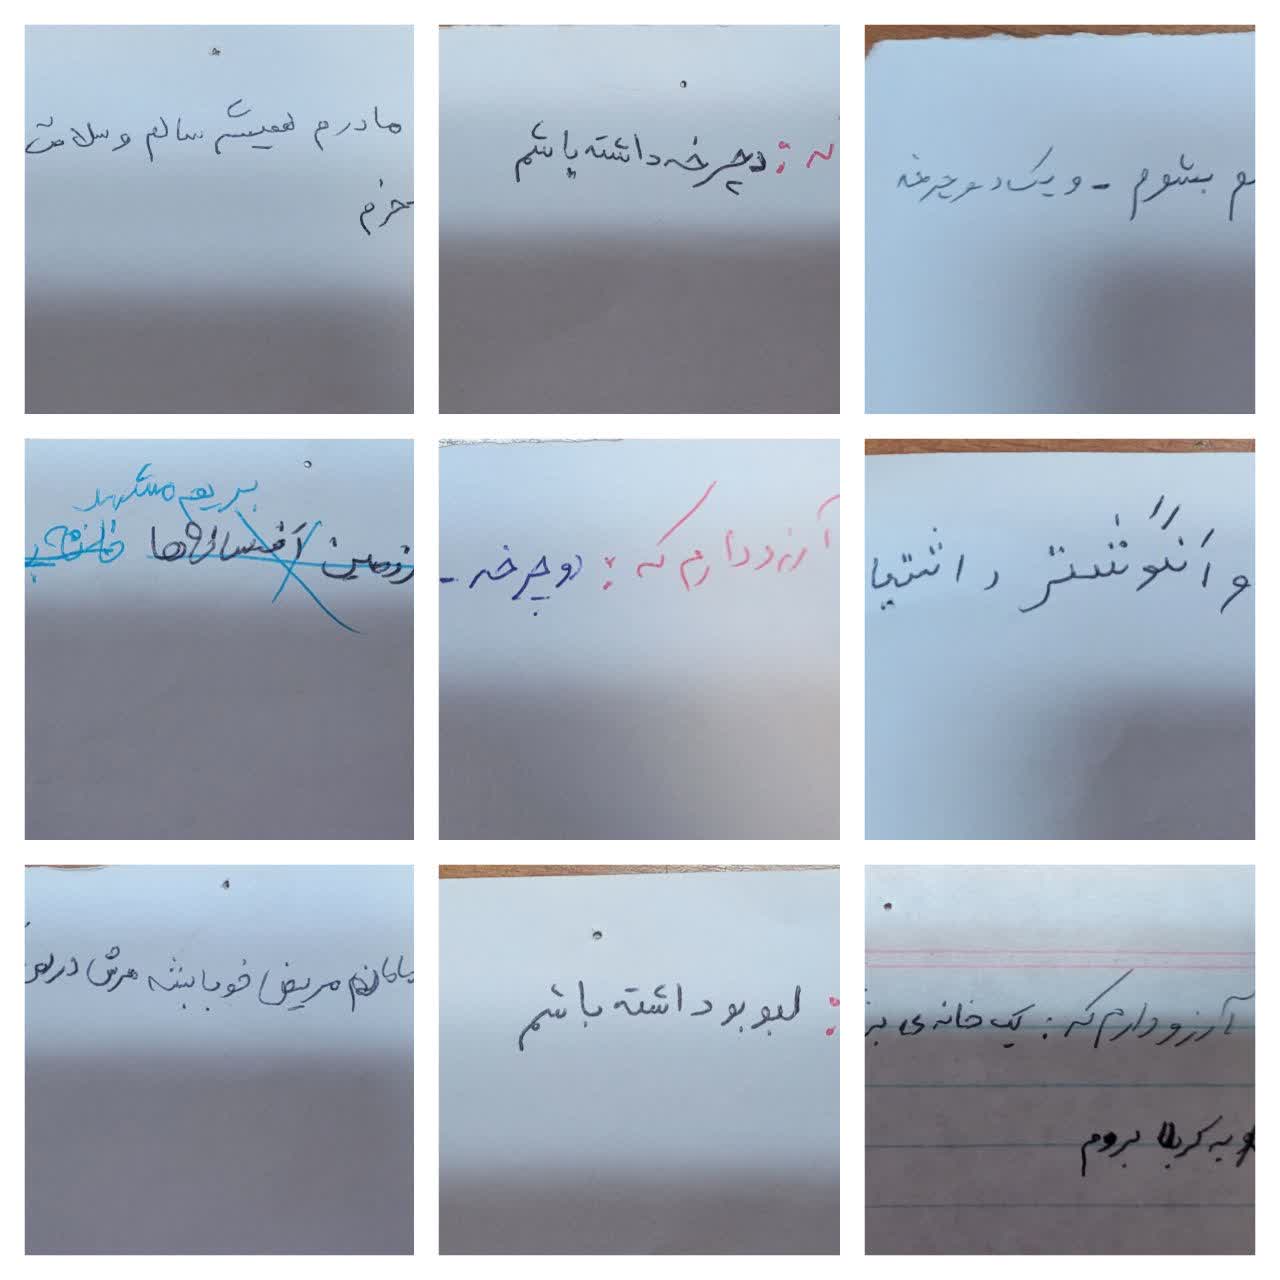 مادرم همیشه سالم و سلامت
بخرم
که : دوچرخه داشته باشم
م بشوم - و یک دوچرخه
بریم مشهد
سرزمین افسانه‌ها
آرزو دارم که : دوچرخه -
و انگوشتر داشتیا
مامانم مریض خوبابشه مرش در
: لبوبو داشته باشم
آرزو دارم که : یک خانه ی بز
و به کربلا بروم